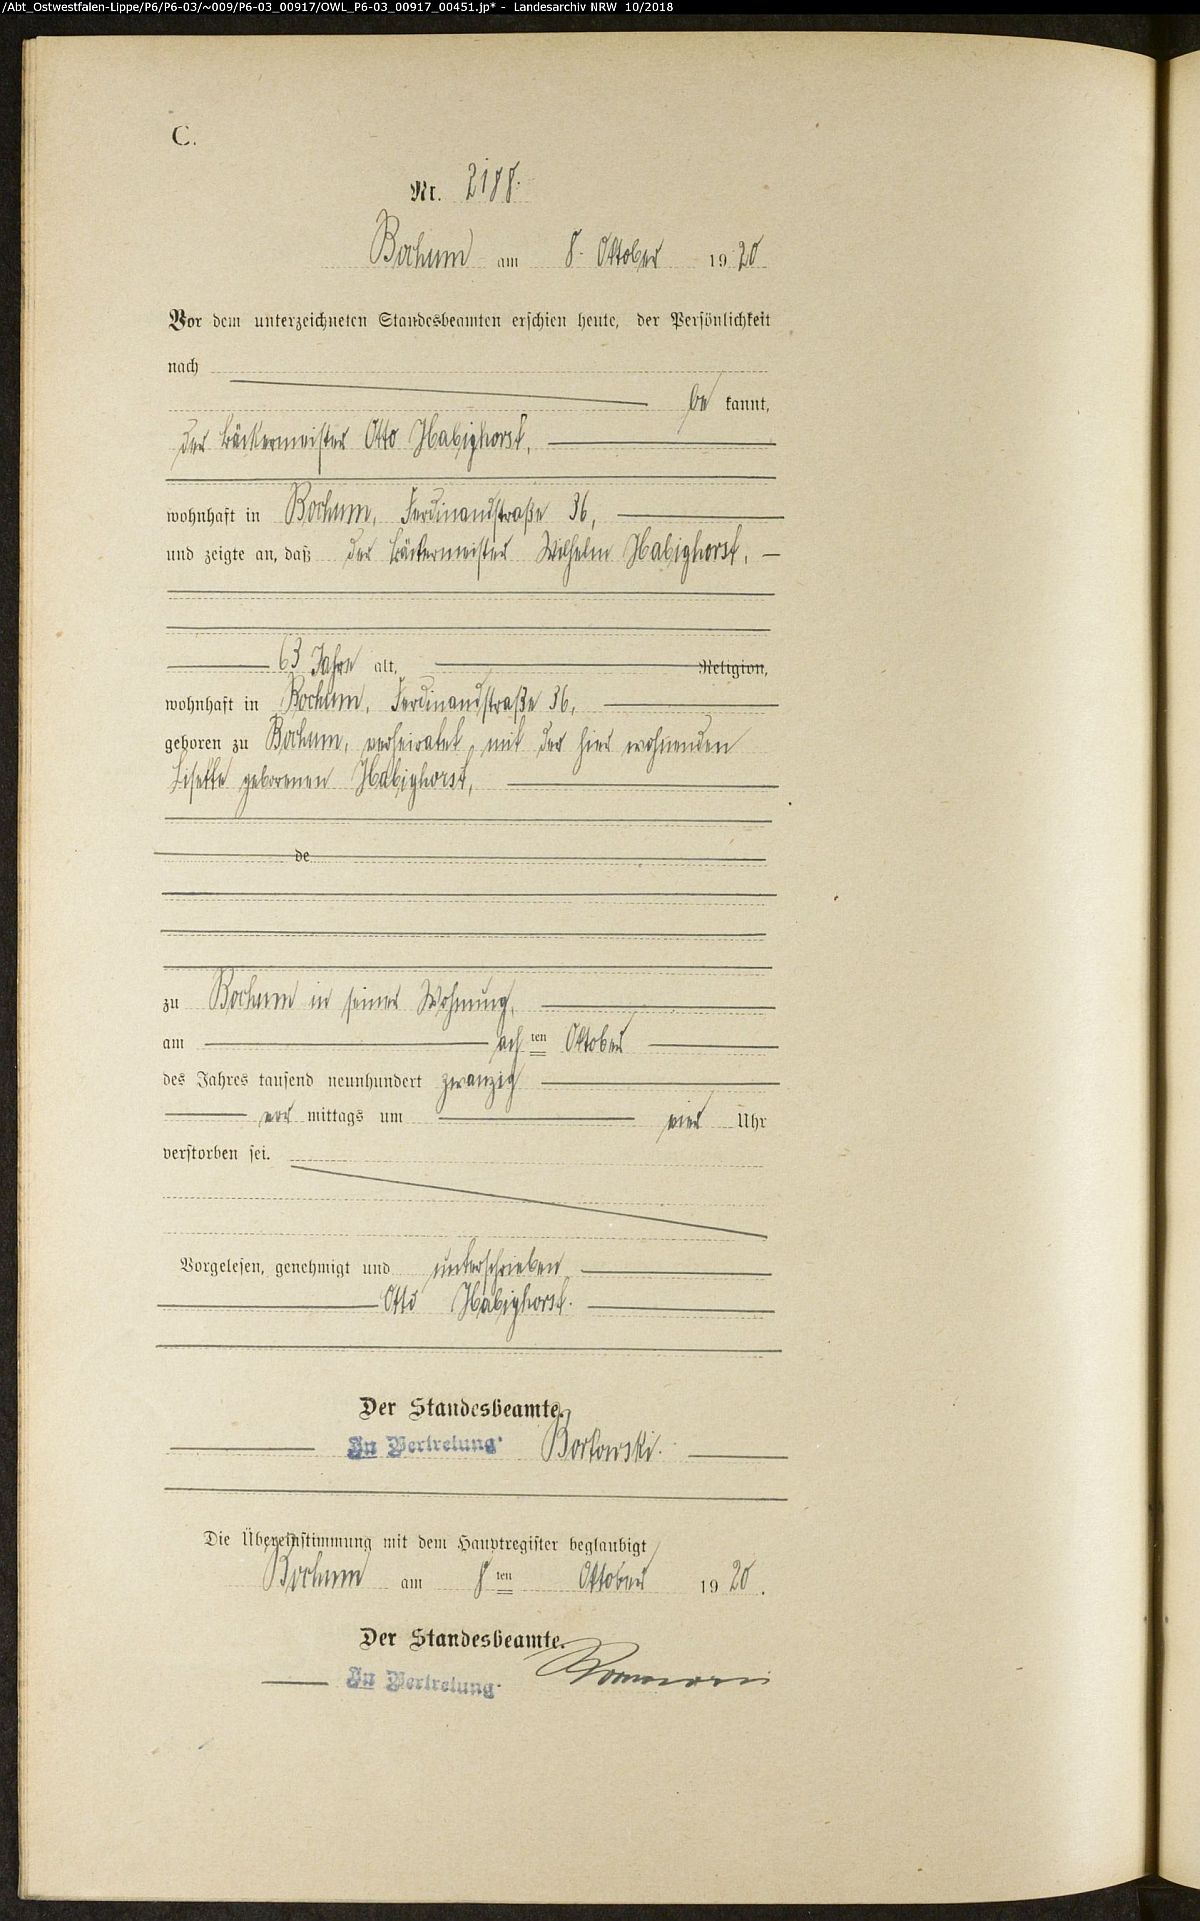 /Abt_Ostwestfalen-Lippe/P6/P6-03/~009/P6-03_00917/OWL_P6-03_00917_00451.jp* - Landesarchiv NRW 10/2018
C.
Nr. 2188.
Bochum am 8. Oktober 1920
Vor dem unterzeichneten Standesbeamten erschien heute, der Persönlichkeit
nach
be kannt,
der Bäckermeister Otto Habighorst,
wohnhaft in Bochum, Ferdinandstraße 36,
und zeigte an, daß der Bäckermeister Wilhelm Habighorst,
63 Jahre alt, Religion,
wohnhaft in Bochum, Ferdinandstraße 36,
geboren zu Bochum, verheiratet mit der hier wohnenden
Lisette geborenen Habighorst,
de
zu Bochum in seiner Wohnung,
am ach ten Oktober
des Jahres tausend neunhundert zwanzig
vor mittags um vier Uhr
verstorben sei.
Vorgelesen, genehmigt und unterschrieben
Otto Habighorst.
Der Standesbeamte.
In Vertretung. Borkowski.
Die Übereinstimmung mit dem Hauptregister beglaubigt
Bochum am 8 ten Oktober 1920.
Der Standesbeamte.
In Vertretung.